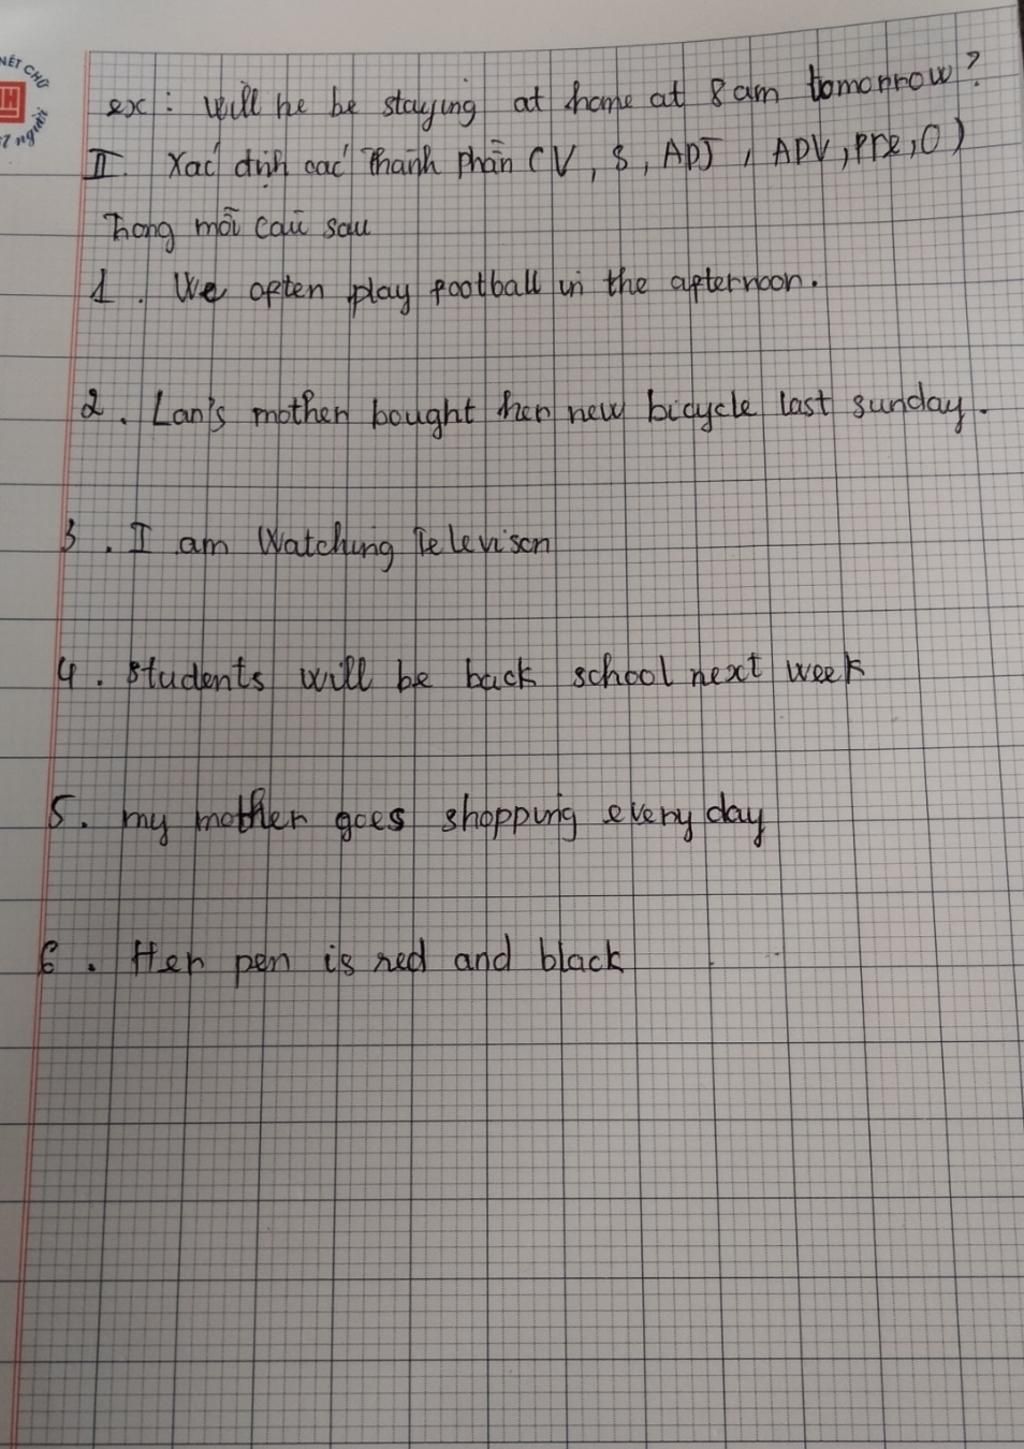 NÉT CHỮ
H
người
ex : Will he be staying at home at 8 am tomorrow ?
II. Xác định các thành phần (V, S, ADJ, ADV, pre, O)
Trong mỗi câu sau
1. We often play football in the afternoon.
2. Lan's mother bought her new bicycle last sunday.
3. I am Watching Televison
4. students will be back school next week
5. my mother goes shopping every day
6. Her pen is red and black